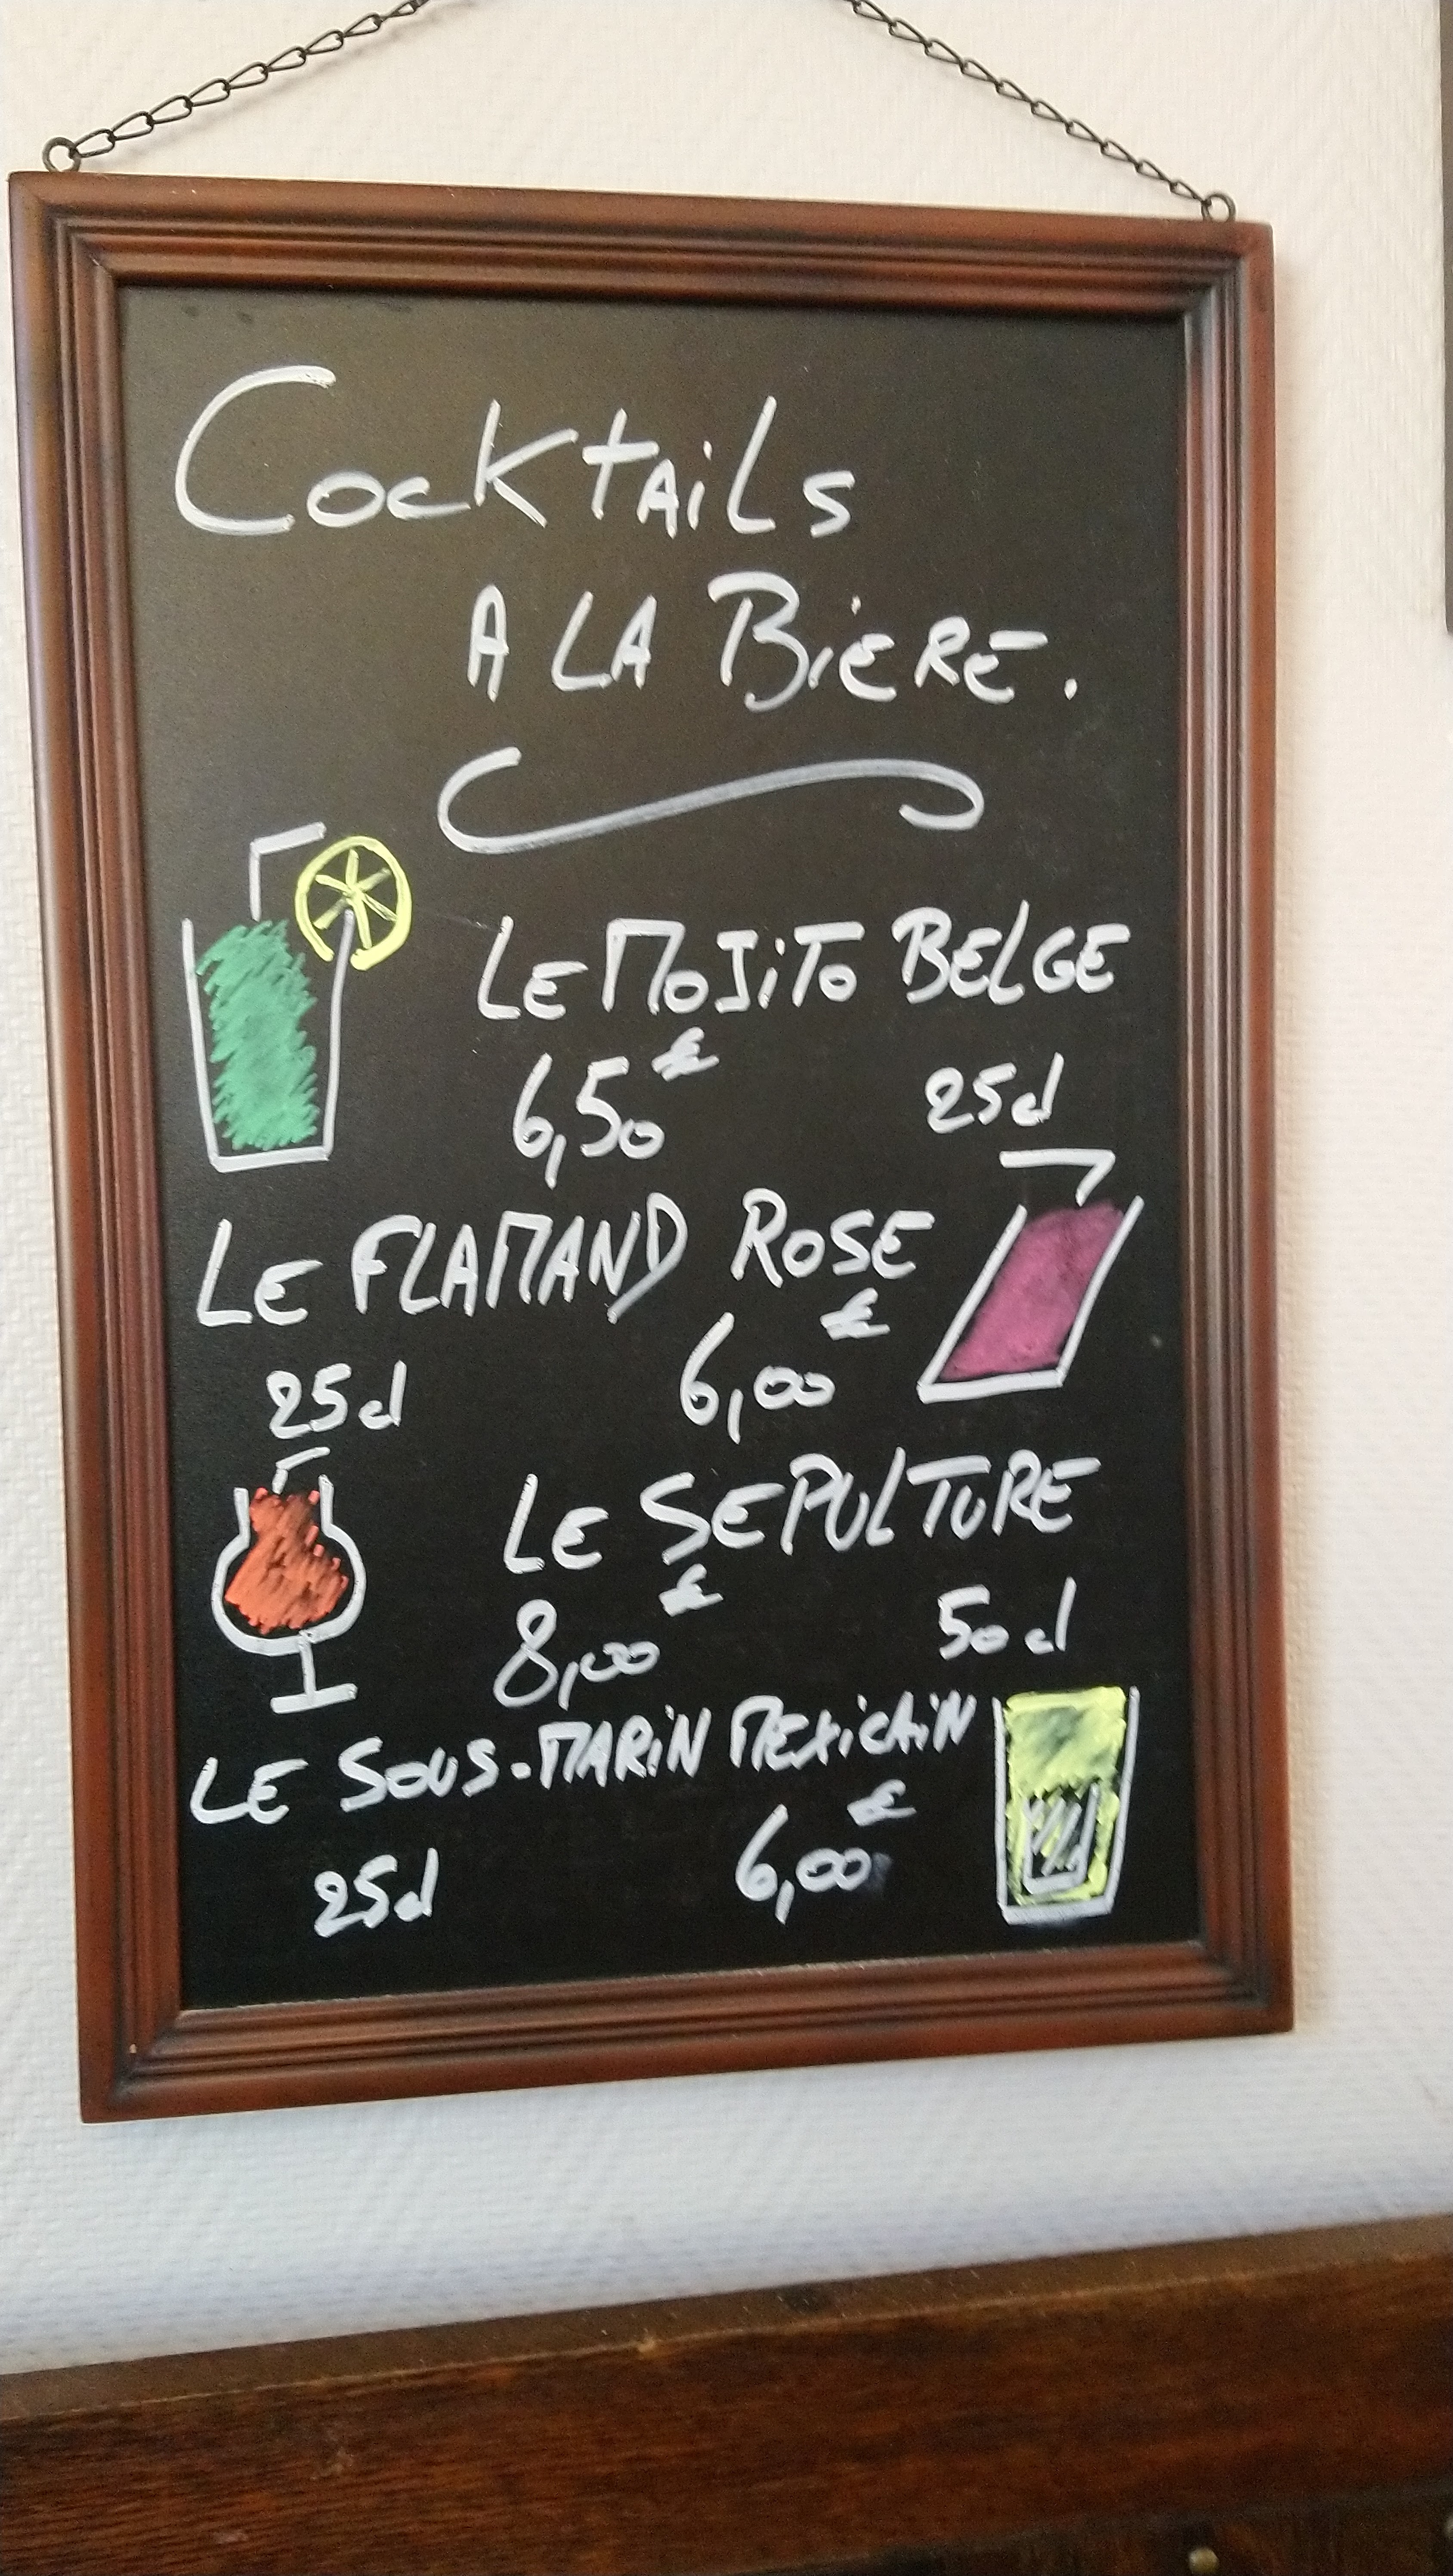 Cocktails
A LA BIERE.
LE MOJITO BELGE
6,50€ 25cl
LE FLAMAND ROSE
25cl 6,00€
LE SEPULTURE
8,00€ 50cl
LE SOUS-MARIN MEXICAIN
25cl 6,00€